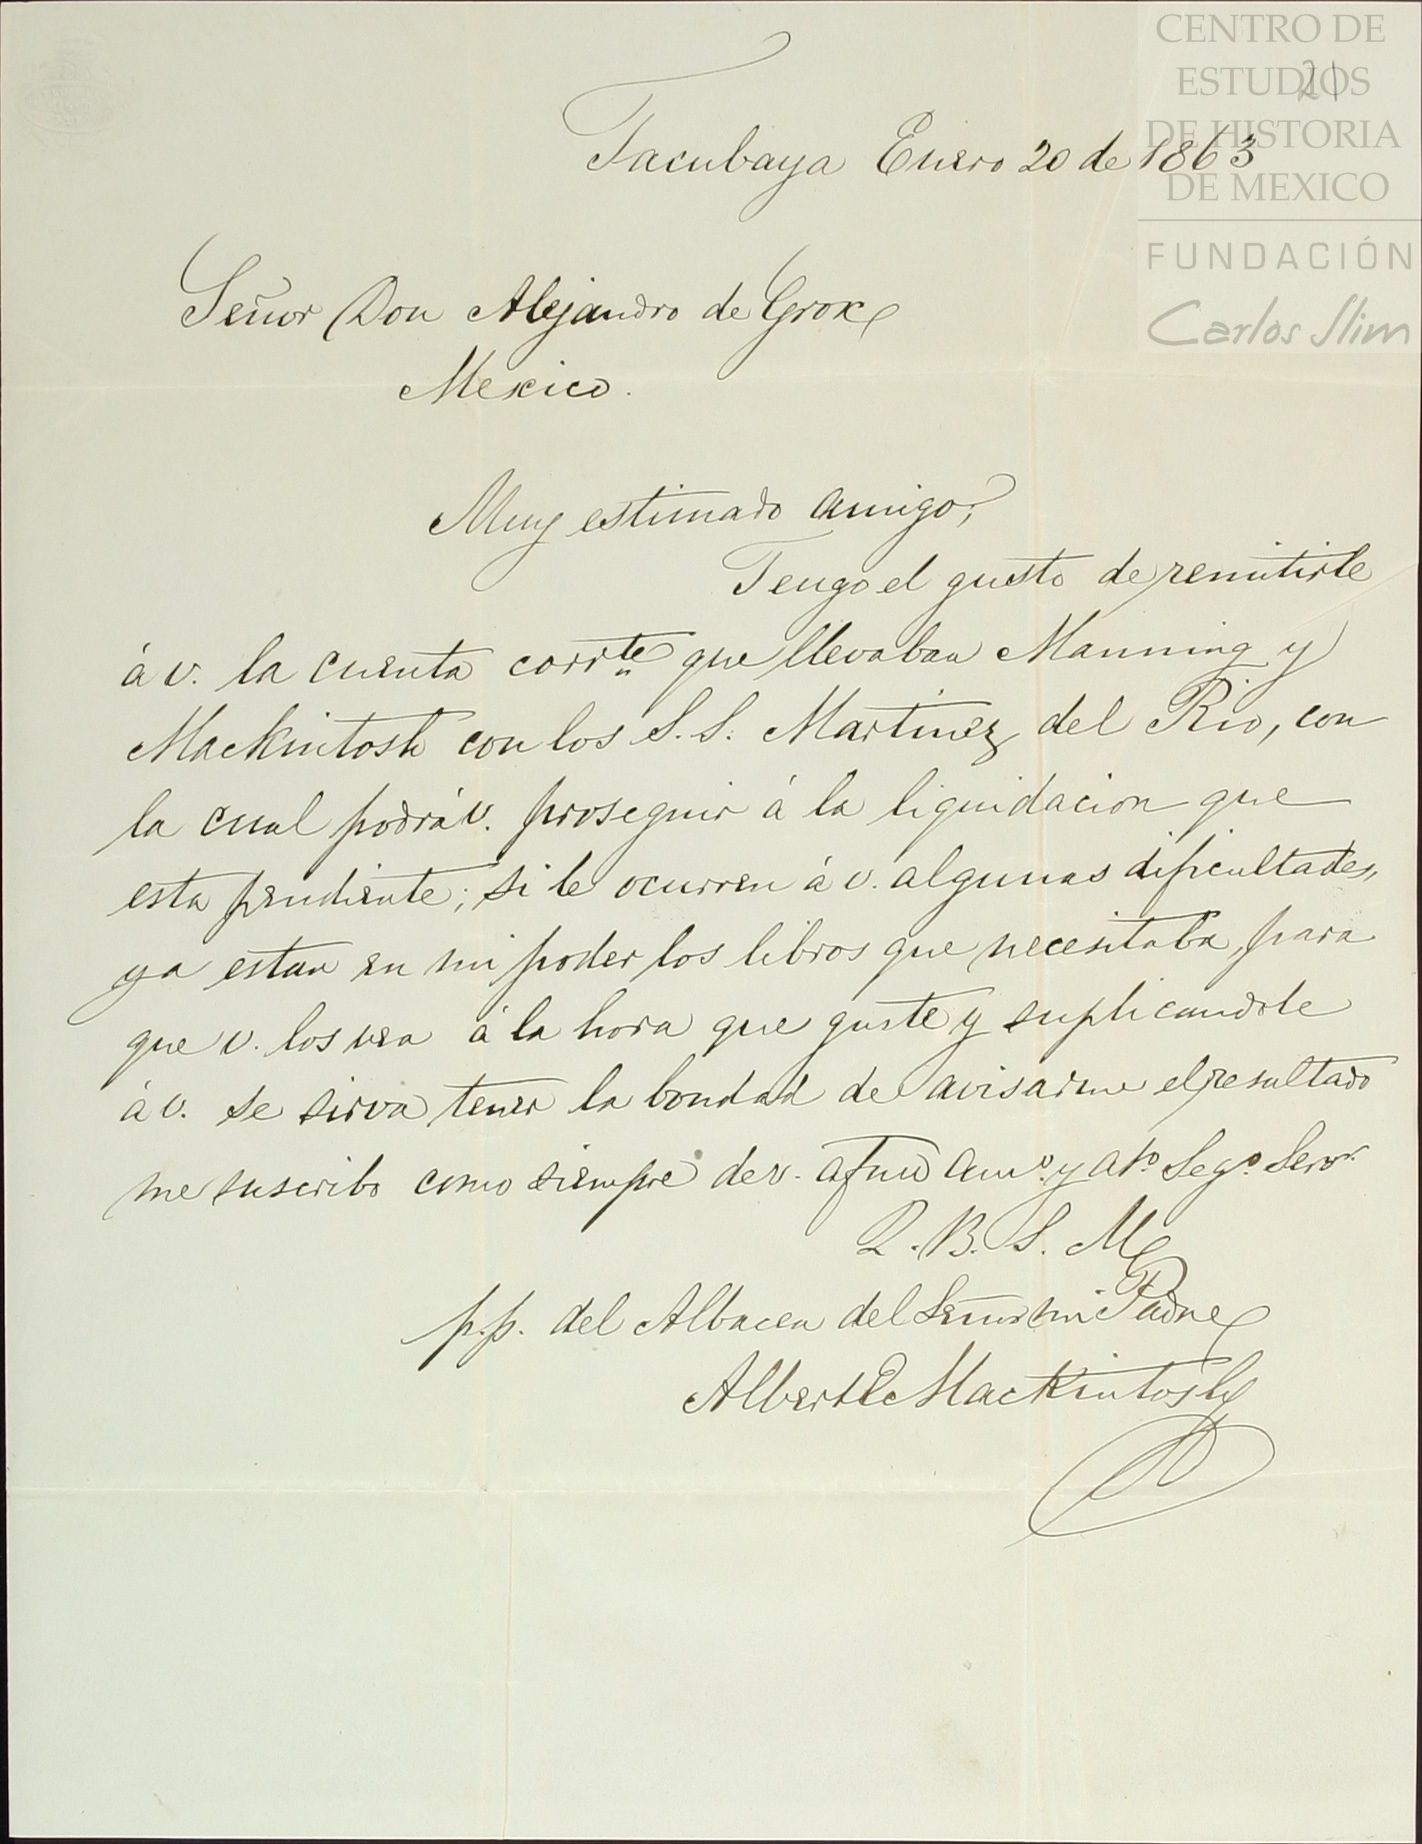 CENTRO DE
ESTUDIOS
DE HISTORIA
DE MEXICO
FUNDACIÓN
Carlos Slim
21
Tacubaya Enero 20 de 1863
Señor Don Alejandro de Grox
Mexico.
Muy estimado amigo,
Tengo el gusto de remitirle
á v. la cuenta corrte que llevaban Manning y
Mackintosh con los S.S. Martinez del Rio, con
la cual podrá v. proseguir á la liquidacion que
esta pendiente; si le ocurren á v. algunas dificultades,
ya estan en mi poder los libros que necesitaba, para
que v. los vea á la hora que guste y suplicandole
á v. se sirva tener la bondad de avisarme el resultado
me suscribo como siempre de v. afmo amo. y ato. Sego. Servr.
Q. B. S. M
p.p. del Albacea del Señor mi Padre
Albert E Mackintosh